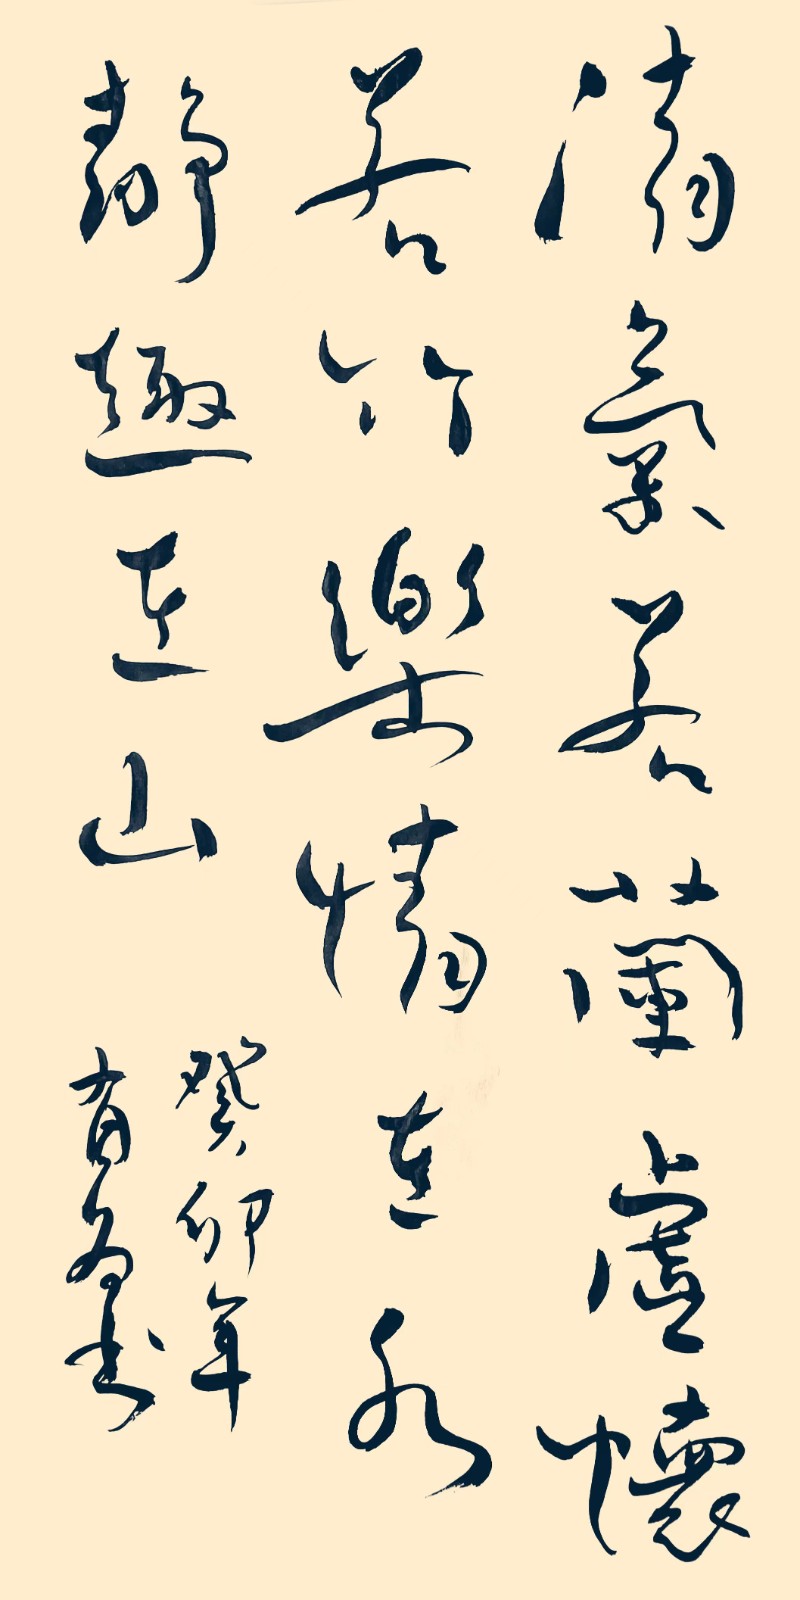 清氣若蘭虛懷
若竹樂情在水
靜趣在山
癸卯年
有為書